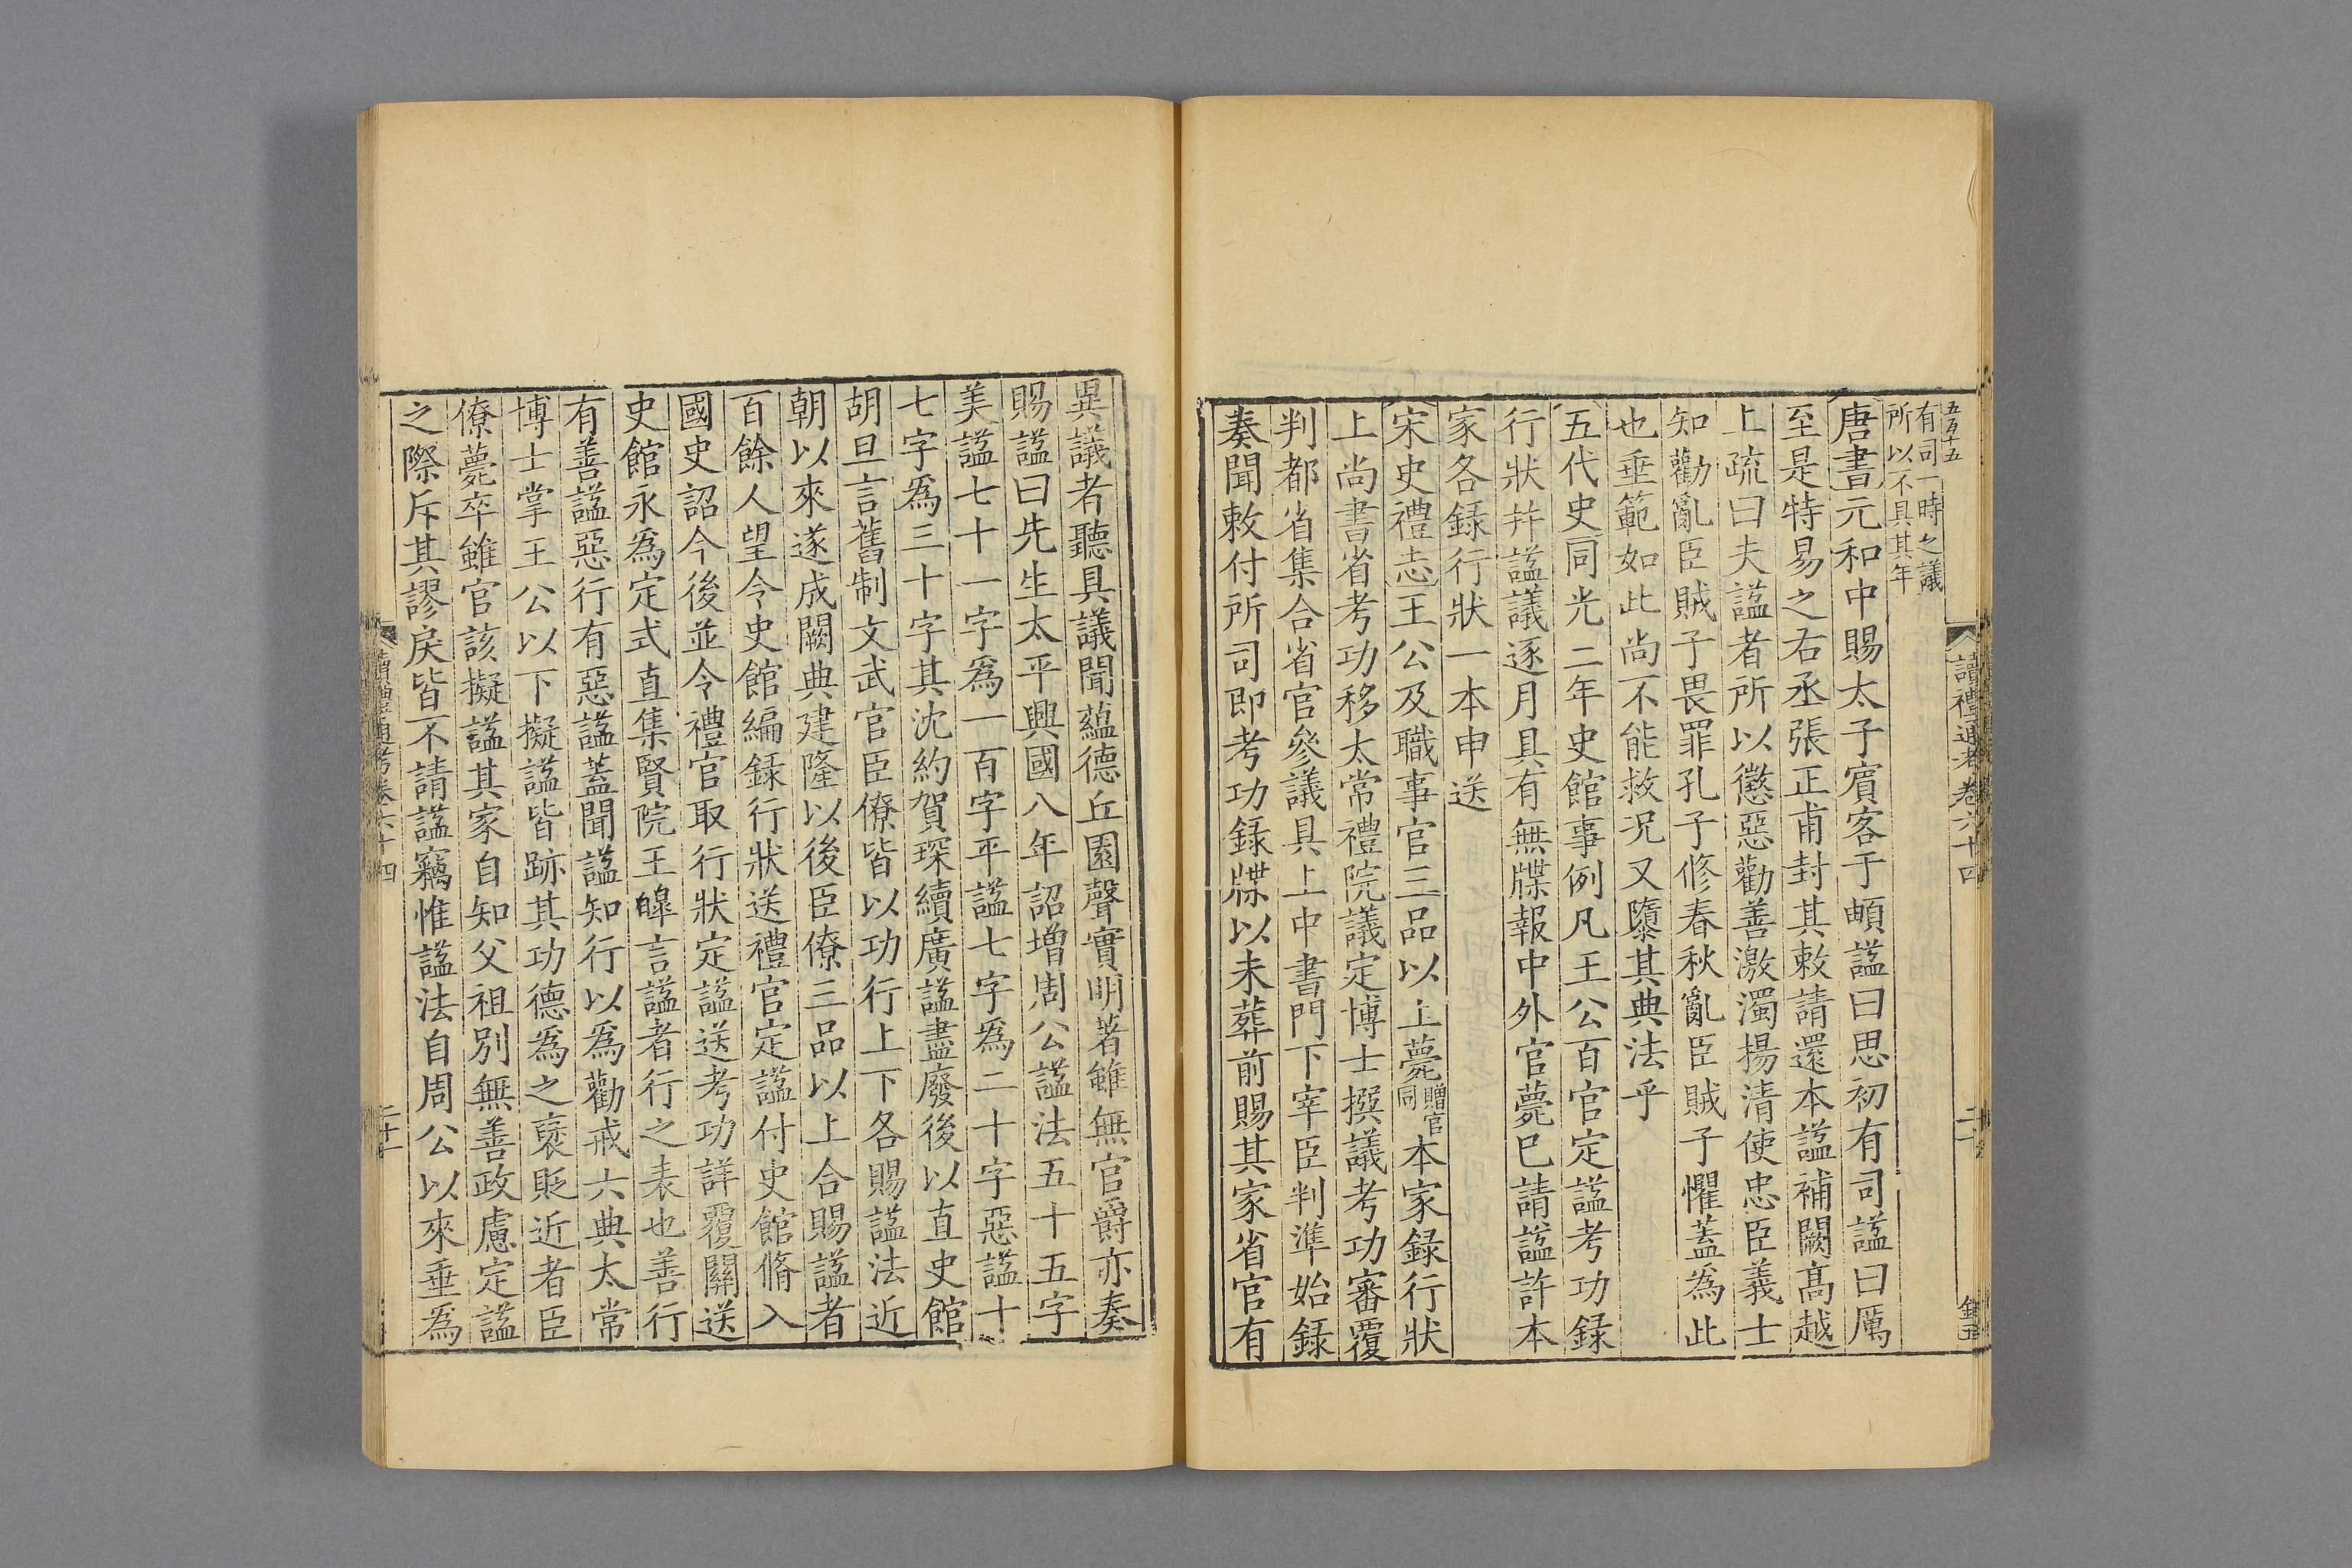 五百十五
讀禮通考卷六十四
二十
有司一時之議
所以不具其年
唐書元和中賜太子賓客于頔諡曰思初有司諡曰厲
至是特易之右丞張正甫封其敕請還本諡補闕髙越
上疏曰夫諡者所以懲惡勸善激濁揚清使忠臣義士
知勸亂臣賊子畏罪孔子修春秋亂臣賊子懼蓋爲此
也垂範如此尚不能救况又隳其典法乎
五代史同光二年史館事例凡王公百官定諡考功録
行狀并諡議逐月具有無牒報中外官薨已請諡許本
家各録行狀一本申送
宋史禮志王公及職事官三品以上薨贈官同本家録行狀
上尚書省考功移太常禮院議定博士撰議考功審覆
判都省集合省官參議具上中書門下宰臣判準始録
奏聞敕付所司即考功録牒以未葬前賜其家省官有
異議者聽具議聞蘊德丘園聲實明著雖無官爵亦奏
賜諡曰先生太平興國八年詔增周公諡法五十五字
美諡七十一字爲一百字平諡七字爲二十字惡諡十
七字爲三十字其沈約賀琛續廣諡盡廢後以直史館
胡旦言舊制文武官臣僚皆以功行上下各賜諡法近
朝以來遂成闕典建隆以後臣僚三品以上合賜諡者
百餘人望令史館編録行狀送禮官定諡付史館脩入
國史詔今後並令禮官取行狀定諡送考功詳覆關送
史館永爲定式直集賢院王皥言諡者行之表也善行
有善諡惡行有惡諡蓋聞諡知行以爲勸戒六典太常
博士掌王公以下擬諡皆跡其功德爲之襃貶近者臣
僚薨卒雖官該擬諡其家自知父祖別無善政慮定諡
之際斥其謬戾皆不請諡竊惟諡法自周公以來垂爲
讀禮通考卷六十四
二十一